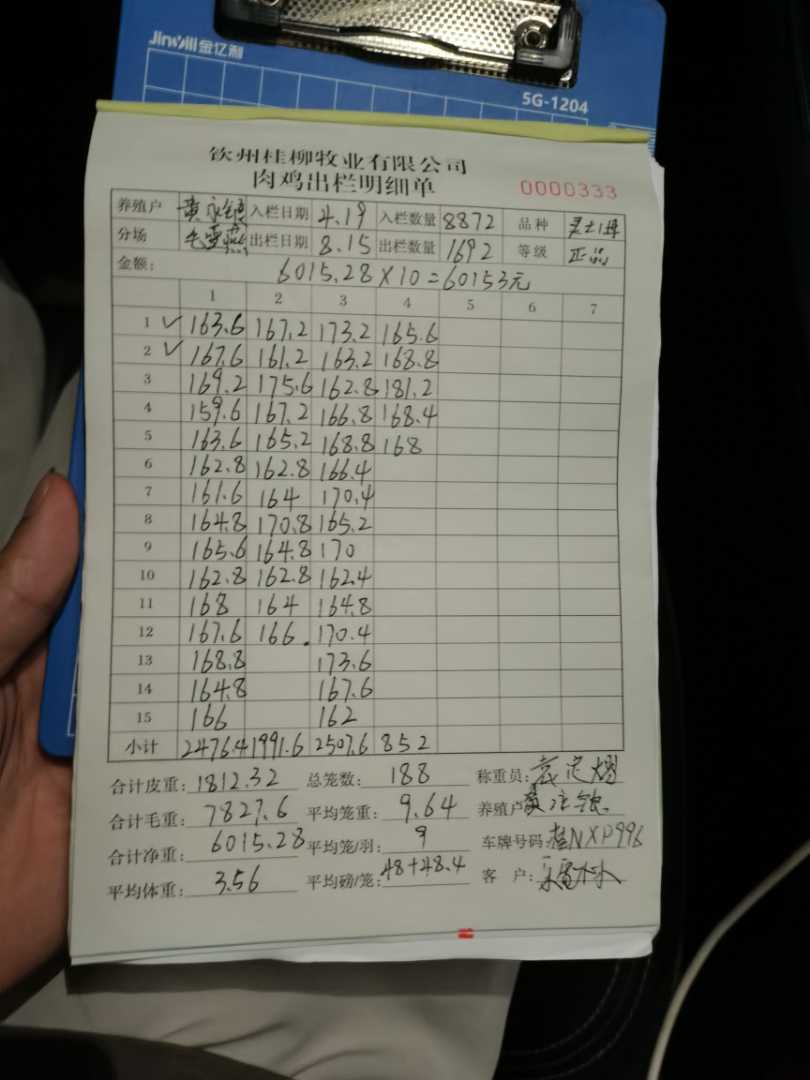 Jinyili金亿利
SG-1204
钦州桂柳牧业有限公司
肉鸡出栏明细单
0000333
养殖户 入栏日期 4.19 入栏数量 8872 品种
分场 出栏日期 8.15 出栏数量 1692 等级 正品
金额: 6015.28×10=60153元
1 2 3 4 5 6 7
1 ✓ 163.6 167.2 173.2 165.6
2 ✓ 167.6 161.2 163.2 168.8
3 169.2 175.6 162.8 181.2
4 159.6 167.2 166.8 168.4
5 163.6 165.2 168.8 168
6 162.8 162.8 166.4
7 161.6 164 170.4
8 164.8 170.8 165.2
9 165.6 164.8 170
10 162.8 162.8 162.4
11 168 164 164.8
12 167.6 166 170.4
13 168.8 173.6
14 164.8 167.6
15 166 162
小计 2476.4 1991.6 2507.6 852
合计皮重: 1812.32 总笼数: 188 称重员:
合计毛重: 7827.6 平均笼重: 9.64 养殖户
合计净重: 6015.28 平均笼/羽: 9 车牌号码 桂NXP996
平均体重: 3.56 平均磅/笼: 48+48.4 客 户: